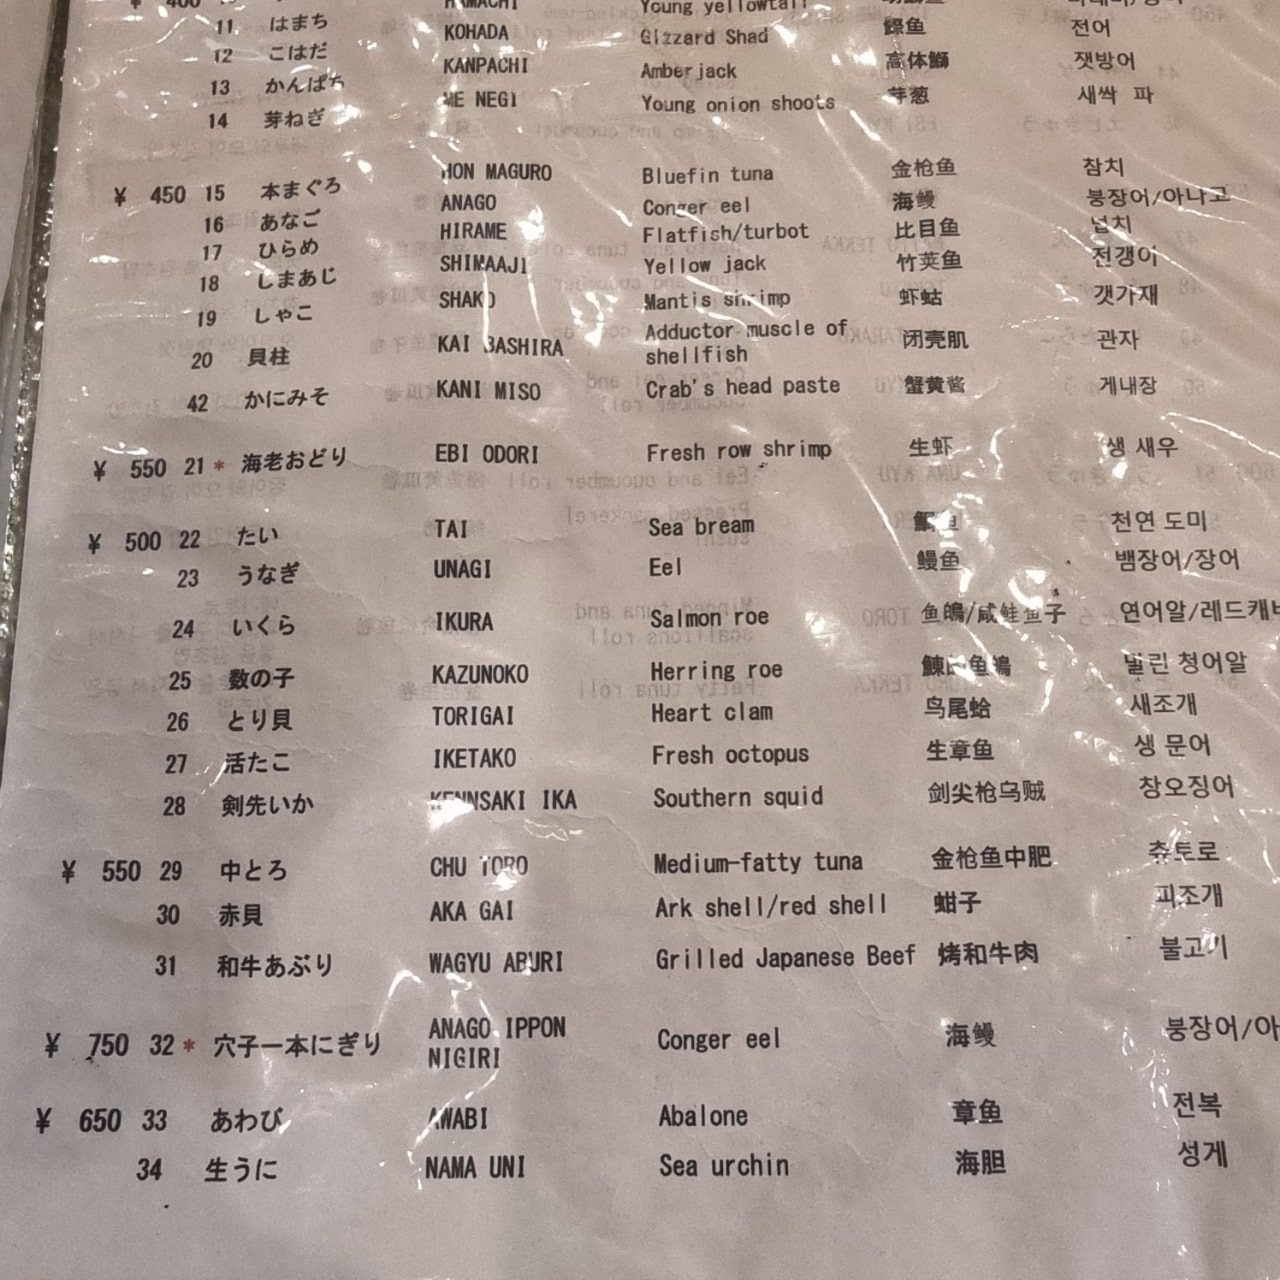 ¥ 400
HAMACHI Young yellowtail
11 はまち KOHADA Gizzard Shad 鰶鱼 전어
12 こはだ KANPACHI Amberjack 高体鰤 잿방어
13 かんぱち ME NEGI Young onion shoots 芽葱 새싹 파
14 芽ねぎ
¥ 450 15 本まぐろ HON MAGURO Bluefin tuna 金枪鱼 참치
16 あなご ANAGO Conger eel 海鳗 붕장어/아나고
17 ひらめ HIRAME Flatfish/turbot 比目鱼 넙치
18 しまあじ SHIMAAJI Yellow jack 竹荚鱼 전갱이
19 しゃこ SHAKO Mantis shrimp 虾蛄 갯가재
20 貝柱 KAI BASHIRA Adductor muscle of shellfish 闭壳肌 관자
42 かにみそ KANI MISO Crab's head paste 蟹黄酱 게내장
¥ 550 21 * 海老おどり EBI ODORI Fresh row shrimp 生虾 생 새우
¥ 500 22 たい TAI Sea bream 鲷鱼 천연 도미
23 うなぎ UNAGI Eel 鳗鱼 뱀장어/장어
24 いくら IKURA Salmon roe 咸鲑鱼子 연어알/레드캐비
25 数の子 KAZUNOKO Herring roe 말린 청어알
26 とり貝 TORIGAI Heart clam 鸟尾蛤 새조개
27 活たこ IKETAKO Fresh octopus 生章鱼 생 문어
28 剣先いか KENNSAKI IKA Southern squid 剑尖枪乌贼 창오징어
¥ 550 29 中とろ CHU TORO Medium-fatty tuna 金枪鱼中肥 츄토로
30 赤貝 AKA GAI Ark shell/red shell 蚶子 피조개
31 和牛あぶり WAGYU ABURI Grilled Japanese Beef 烤和牛肉 불고기
¥ 750 32 * 穴子一本にぎり ANAGO IPPON NIGIRI Conger eel 海鳗 붕장어/아
¥ 650 33 あわび AWABI Abalone 章鱼 전복
34 生うに NAMA UNI Sea urchin 海胆 성게